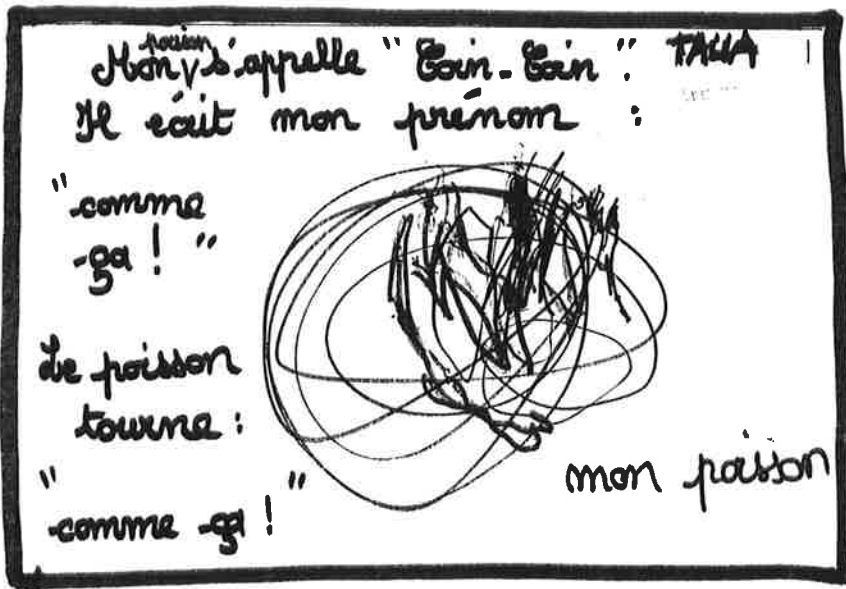 Mon poisson s'appelle "Coin-Coin". TALIA
Il écrit mon prénom :
"comme
ça ! "
Le poisson
tourne :
" comme ça ! "
mon poisson